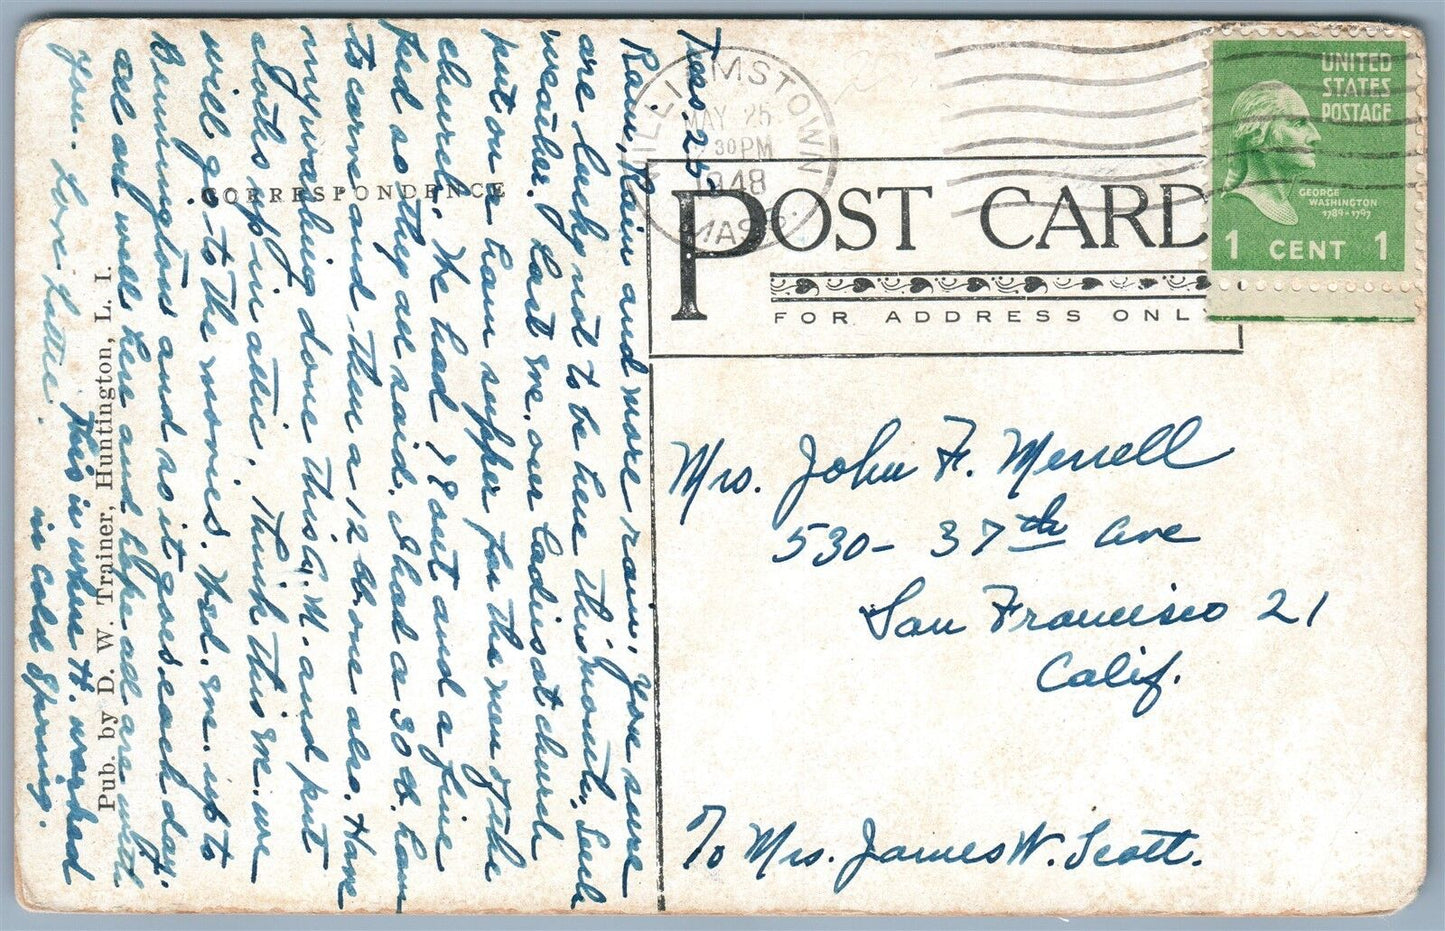 Tues. 25-
Rain, Rain and more rain, you sure
are lucky not to be here this month, Such
weather. Last eve. our Ladies at church
put on a ham supper for the men of the
church. We had 78 out and a fine
feed so they all said. I had a 30 lb. ham
to carve and then a 12 lb. one also. Have
my washing done this A.M. and put
cloths up in attic. Think this eve. we
will go to the movies. Wed. eve. up to
Bennington and so it goes each day.
all are well here and hope all are with
you. Love Lottie.
This is where H. worked
in Cold Spring.
CORRESPONDENCE
Pub. by D. W. Trainer, Huntington, L. I.
WILLIAMSTOWN
MAY 25
30 PM
1948
MASS.
UNITED
STATES
POSTAGE
GEORGE
WASHINGTON
1789-1797
1 CENT 1
POST CARD
FOR ADDRESS ONLY
Mrs. John F. Merrell
530- 37th Ave
San Francisco 21
Calif.
To Mrs. James W. Scott.